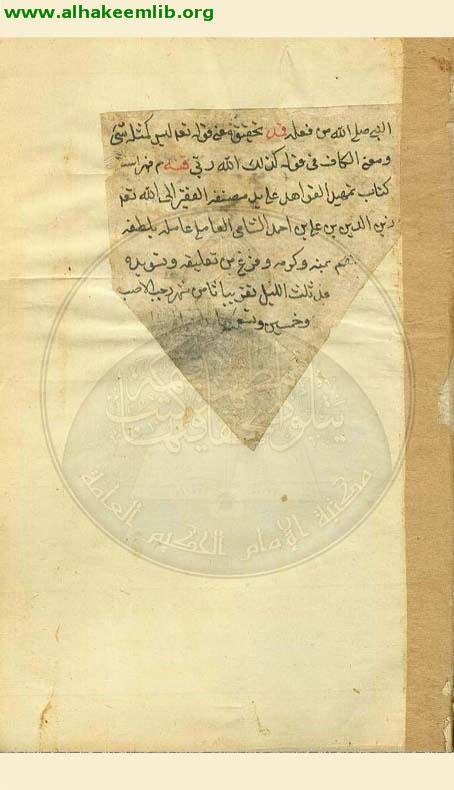 www.alhakeemlib.org
النبي صلى الله من فعله قد تحقيق في قوله تعم ليس كمثله شيء
ومعنى الكاف في قوله كذلك الله ربي
كتاب تمهيد القواعد على يد مصنفه الفقير الى الله تعم
زين الدين بن علي بن احمد الشامي العاملي عامله بلطفه
بمنه وكرمه وفرغ من تعليقه وتسويده
ثلث الليل تقريبا ثامن شهر
وخمسين وتسعمائة
مكتبة الإمام الحكيم العامة